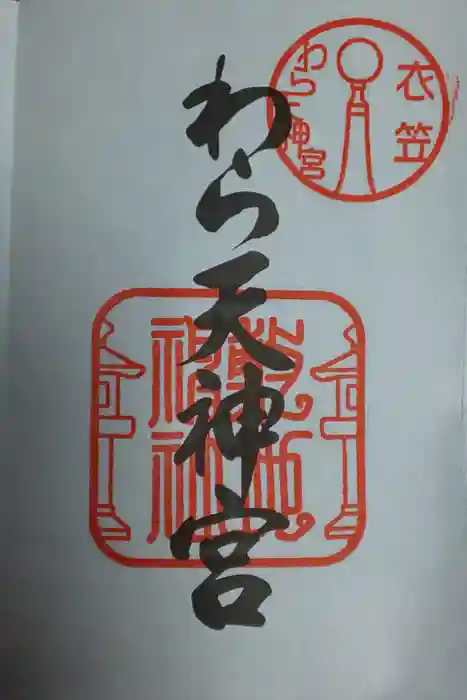 衣笠
わら天神宮
わら天神宮